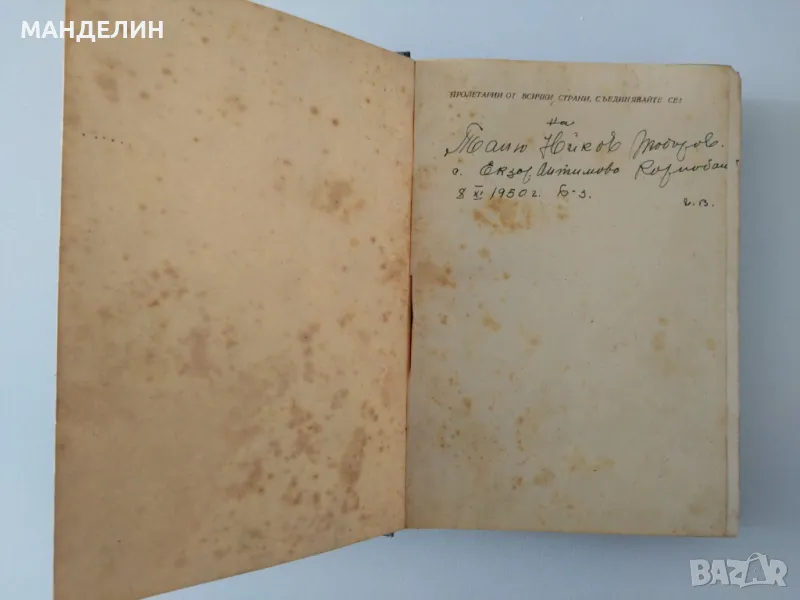 МАНДЕЛИН
ПРОЛЕТАРИИ ОТ ВСИЧКИ СТРАНИ, СЪЕДИНЯВАЙТЕ СЕ!
на
Таню Нйков Тодоров.
с. Екзарх Антимово Карнобат
8 XI 1950 г. Б-з.
г. в.
BAZAR